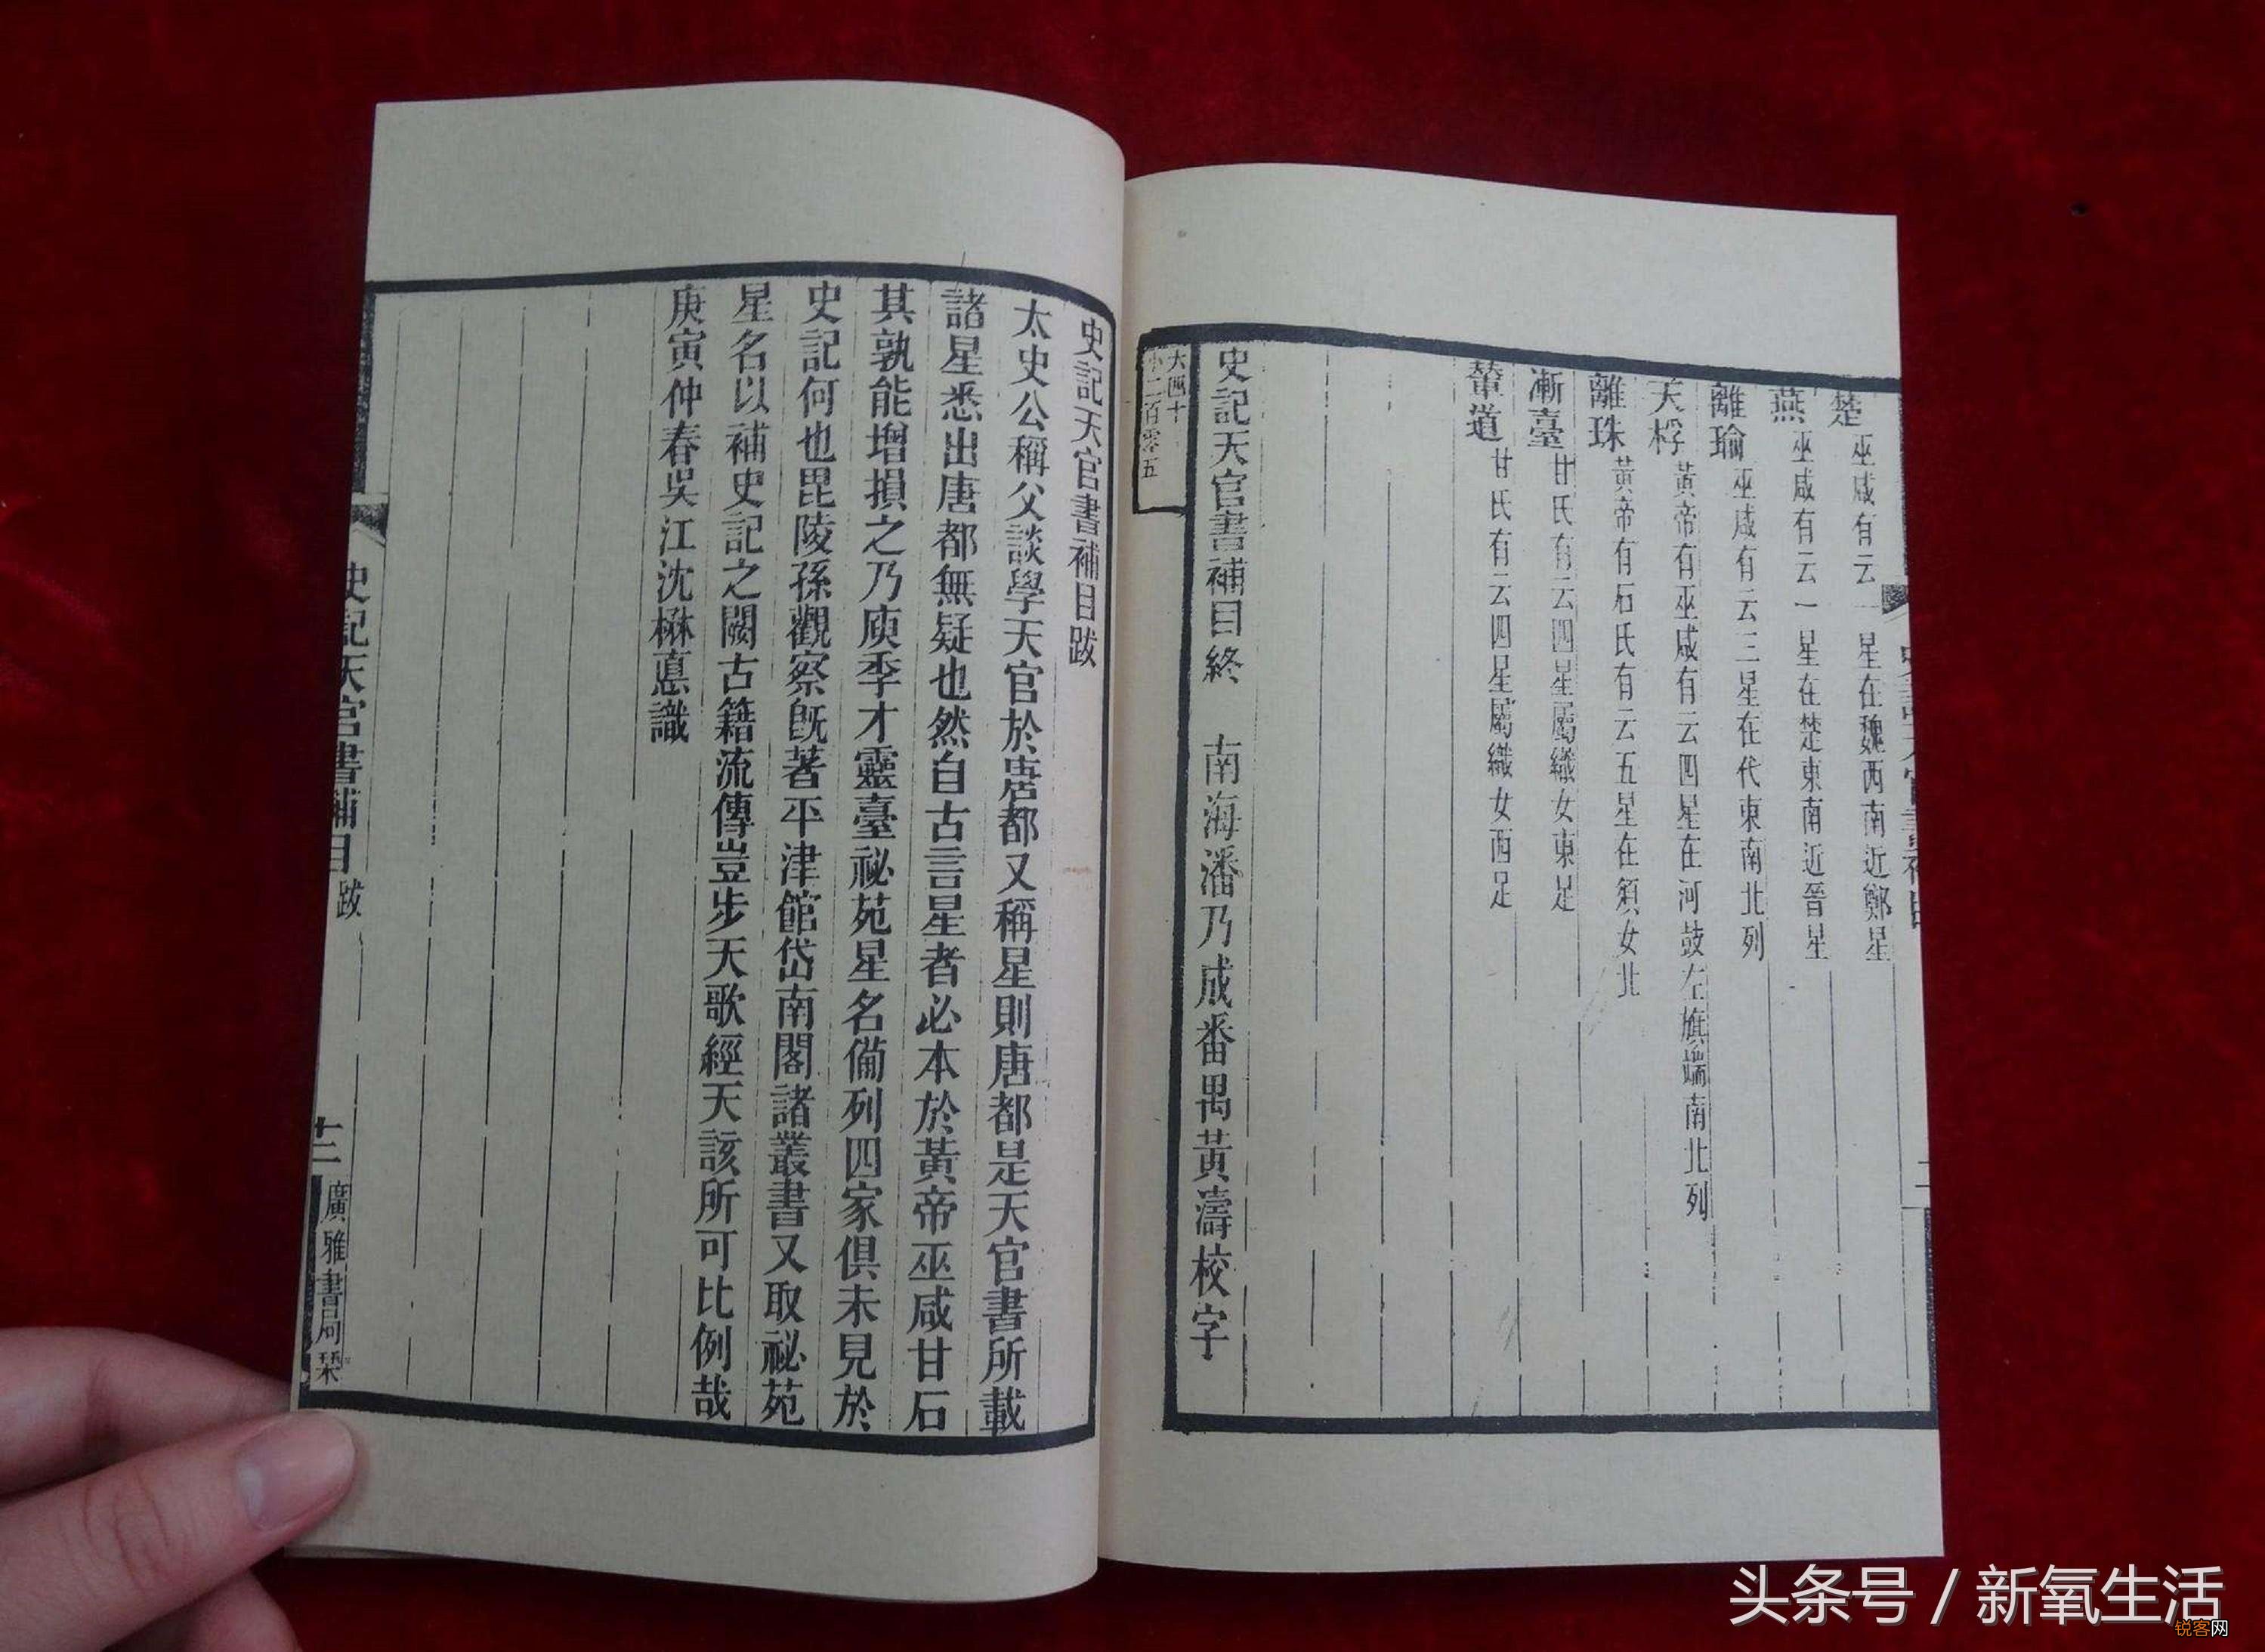 楚 巫咸有云一星在魏西南近鄭星
燕 巫咸有云一星在楚東南近晉星
離瑜 巫咸有云三星在代東南北列
天桴 黃帝有巫咸有云四星在河鼓左旗端南北列
離珠 黃帝有石氏有云五星在須女北
漸臺 甘氏有云四星屬織女東足
輦道 甘氏有云四星屬織女西足
史記天官書補目終 南海潘乃成番禺黃濤校字
大四十
小二百零五
史記天官書補目跋
太史公稱父談學天官於唐都又稱星則唐都是天官書所載
諸星悉出唐都無疑也然自古言星者必本於黃帝巫咸甘石
其孰能增損之乃庾季才靈臺祕苑星名備列四家俱未見於
史記何也毘陵孫觀察旣著平津館岱南閣諸叢書又取祕苑
星名以補史記之闕古籍流傳豈步天歌經天該所可比例哉
庚寅仲春吳江沈楙惪識
史記天官書補目 跋
十二
廣雅書局栞
头条号 / 新氧生活
锐客网